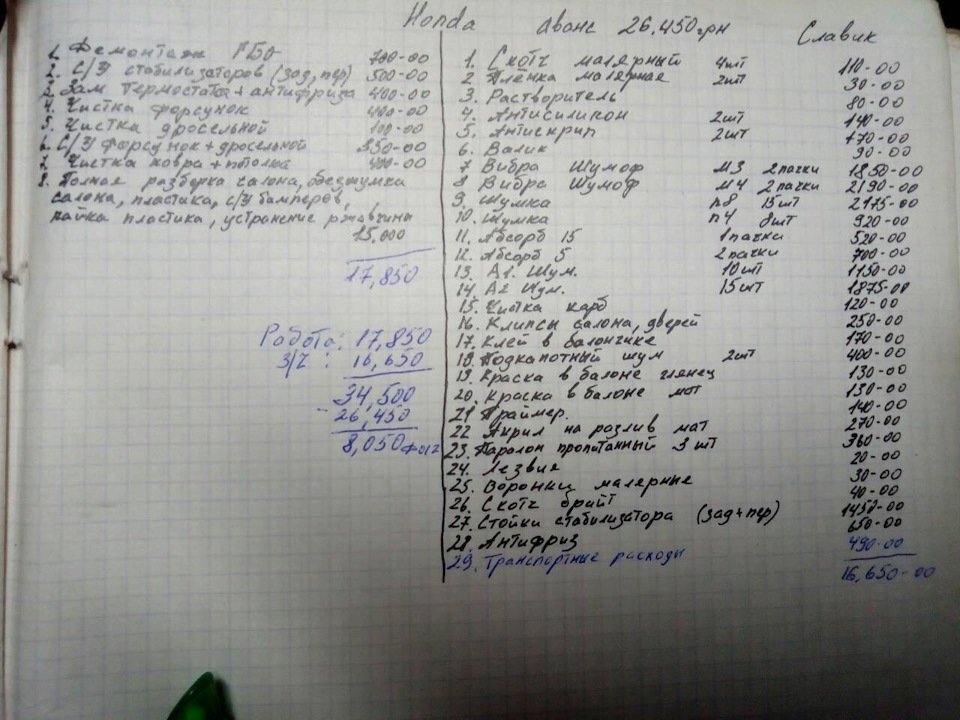 Honda аванс 26.450грн Славик
1. Демонтаж ГБО 700-00
2. С/У стабилизаторов (зад, пер) 500-00
3. Зам термостата + антифриза 400-00
4. Чистка форсунок 400-00
5. Чистка дросельной 100-00
6. С/У форсунок + дросельной 350-00
7. Чистка ковра + потолка 400-00
8. Полная разборка салона, обесшумка
салона, пластика, с/у бамперов,
пайка пластика, устронение ржавчины
15.000
17,850
Работа: 17,850
З/Ч: 16,650
34,500
- 26,450
8,050
1. Скотч малярный 4шт 110-00
2 Плёнка малярная 2шт 30-00
3. Растворитель 80-00
4. Антисиликон 2шт 140-00
5. Антискрип 2шт 470-00
6. Валик 30-00
7 Вибра Шумоф М3 2 пачки 1850-00
8 Вибра Шумоф М4 2 пачки 2190-00
9. Шумка п8 15шт 2175-00
10. Шумка п4 8шт 920-00
11. Абсорб 15 1 пачки 520-00
12. Абсорб 5 2 пачки 700-00
13. А1. Шум. 10шт 1150-00
14. А2 Шум. 15шт 1875-00
15. Чистка карб 120-00
16. Клипсы салона, дверей 250-00
17. Клей в балончике 170-00
18. Подкапотный шум 2шт 400-00
19. Краска в балоне глянец 130-00
20. Краска в балоне мат 130-00
21 Праймер. 140-00
22 Акрил на разлив мат 270-00
23. Паралон пропитанный 3 шт 360-00
24. Лезвия 20-00
25. Воронки малярные 30-00
26. Скотч брайт 40-00
27. Стойки стабилизатора (зад+пер) 1450-00
28. Антифриз 650-00
29. Транспортные расходы 490-00
16,650-00